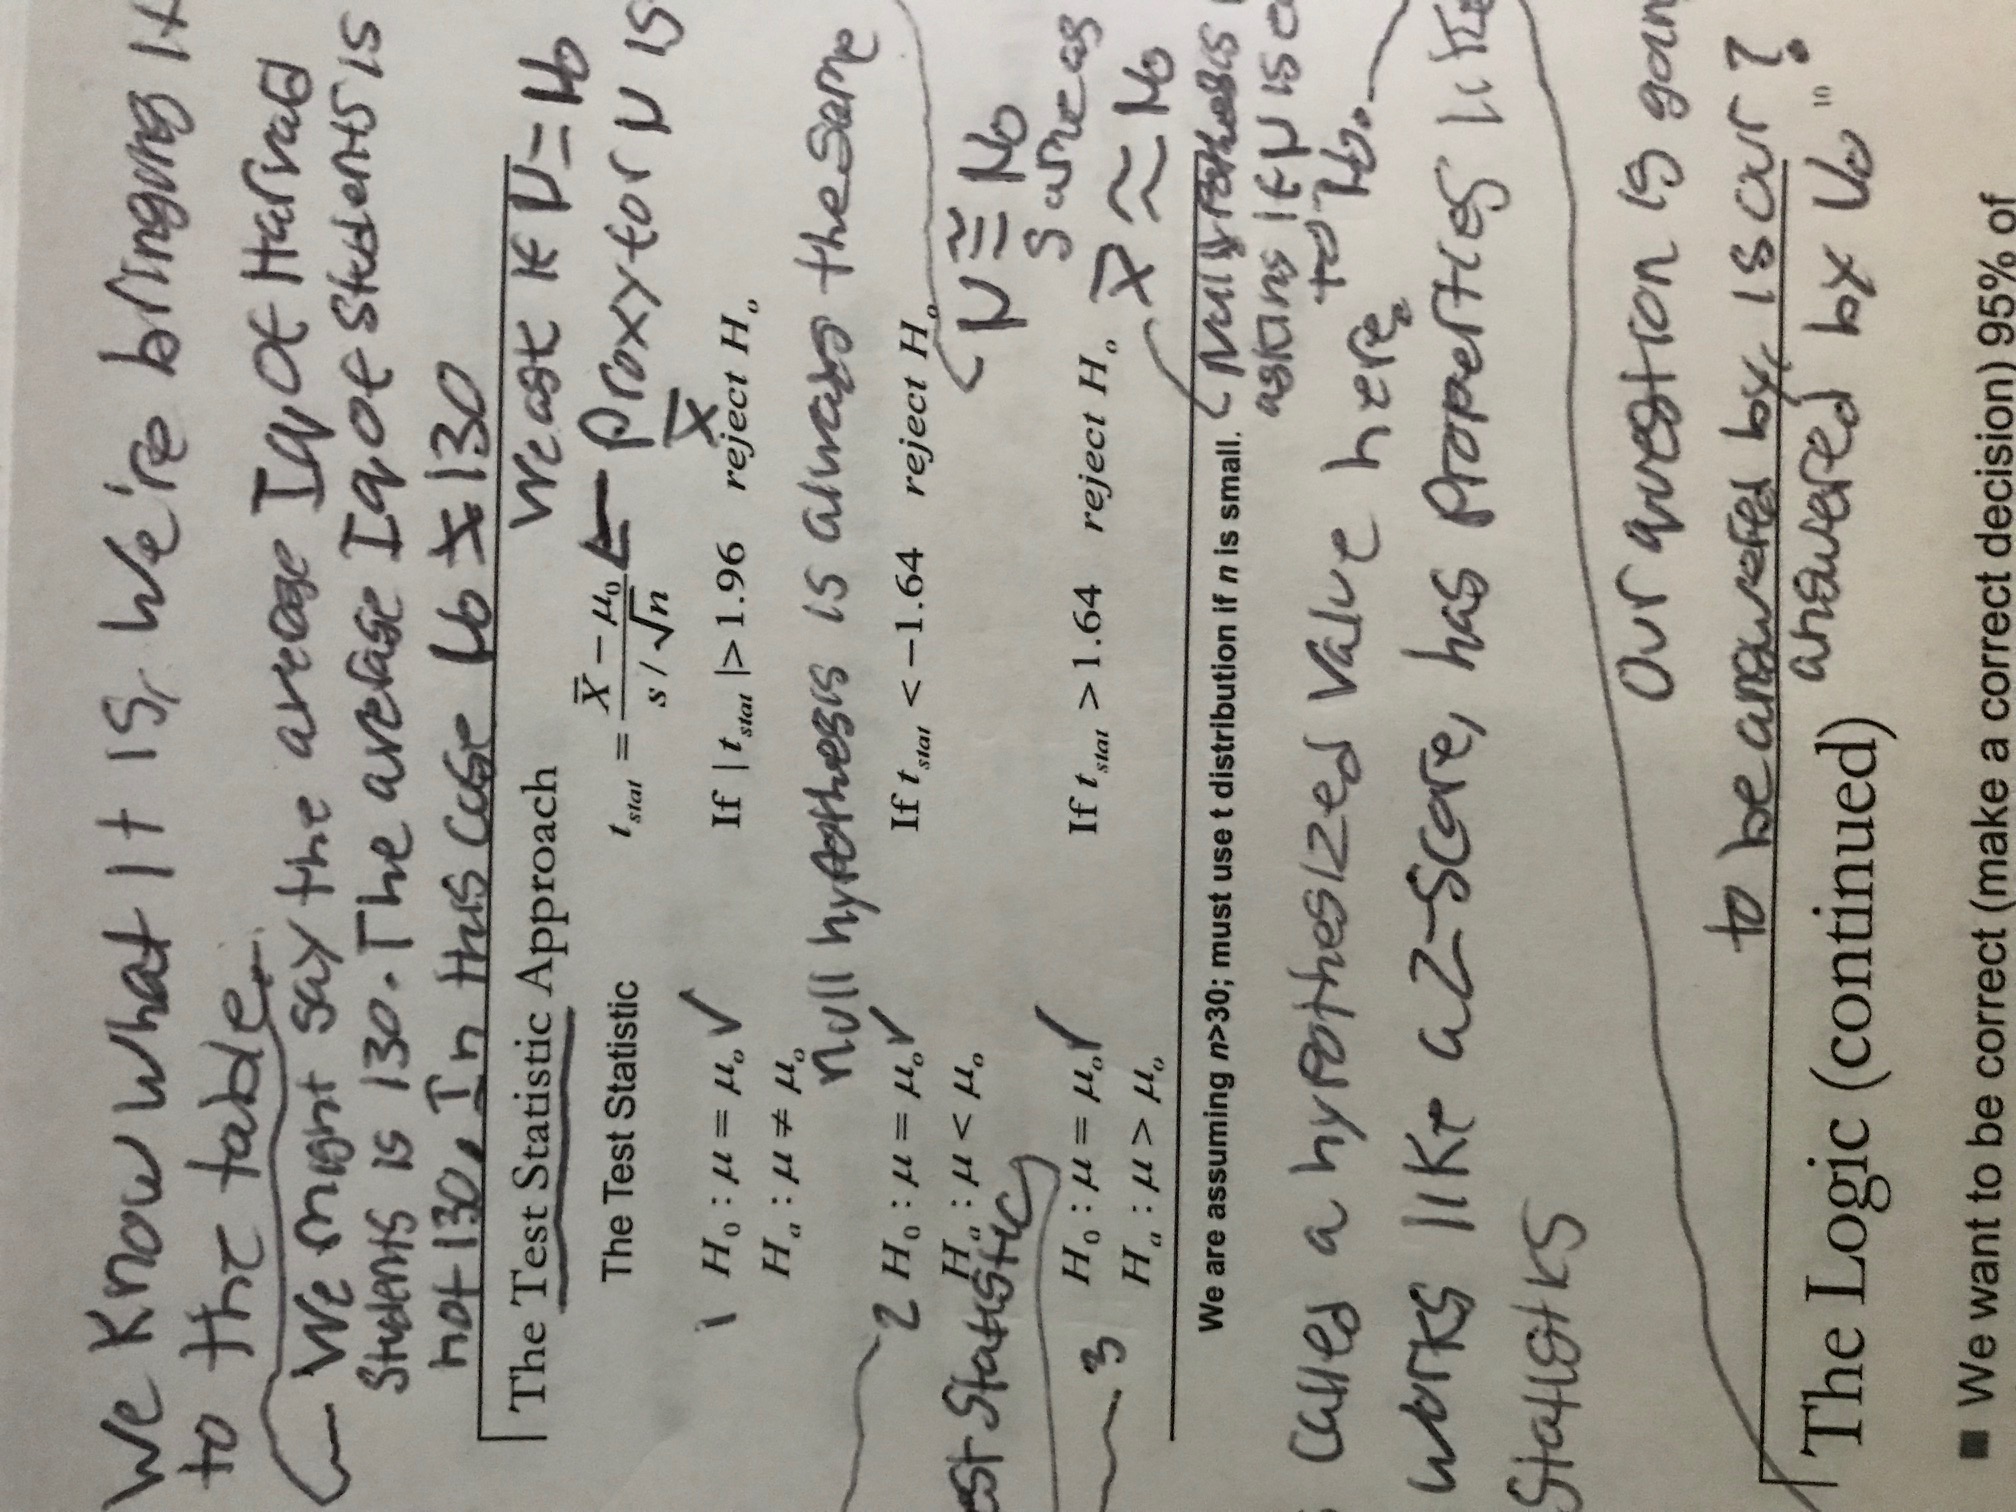 We Know What It Is, We're bringing It
to the table.
We might say the average Iq of Harvard
Students is 130. The average Iq of Students is
not 130. In this case μo ≠ 130
The Test Statistic Approach
We ask if μ = μo
The Test Statistic t stat = X̄ − μ0 / s / √n ← Proxy for μ is
X̄
1 H0 : μ = μo ✓ If | t stat |> 1.96 reject Ho
Ha : μ ≠ μo
null hypothesis is always the same
2 H0 : μ = μo ✓ If t stat < −1.64 reject Ho
Ha : μ < μo
est Statistic
μ ≅ μo
Same as
3 H0 : μ = μo ✓ If t stat > 1.64 reject Ho
X̄ ≈ μo
Ha : μ > μo
We are assuming n>30; must use t distribution if n is small.
asking if μ is
to μo.
Called a hypothesized Value here.
works like a Z-Score, has Properties like
Statistics
Our question is
to be answered by, is our ?
answered by μo
10
The Logic (continued)
■ We want to be correct (make a correct decision) 95% of